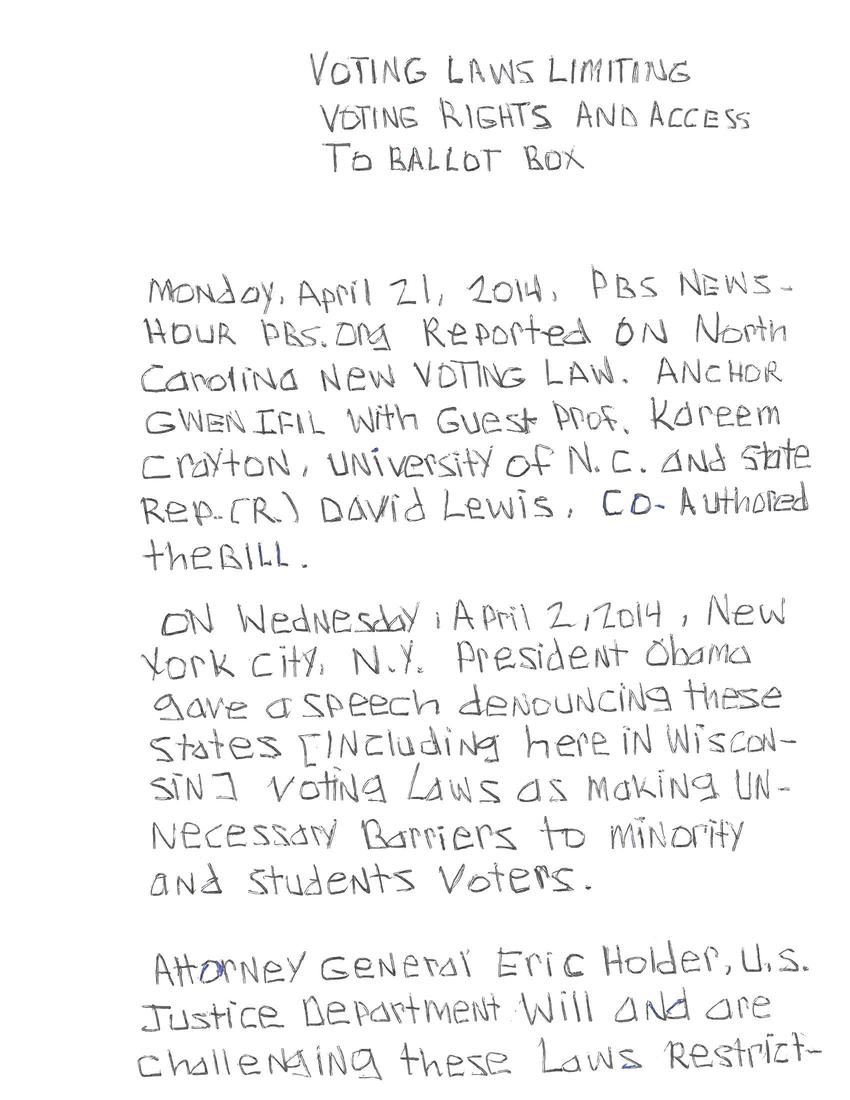 VOTING LAWS LIMITING
VOTING RIGHTS AND ACCESS
TO BALLOT BOX
Monday, April 21, 2014, PBS NEWS-
HOUR PBS.Org Reported ON North
Carolina New VOTING LAW. ANCHOR
GWEN IFIL With Guest Prof. Kareem
Crayton, University of N.C. and State
Rep.(R.) David Lewis, CO-Authored
the BILL.
ON Wednesday, April 2, 2014, New
York City, N.Y. President Obama
gave a speech denouncing these
States [Including here in Wiscon-
sin] Voting Laws as making UN-
Necessary Barriers to minority
and students Voters.
Attorney General Eric Holder, U.S.
Justice Department Will and are
challenging these Laws Restrict-